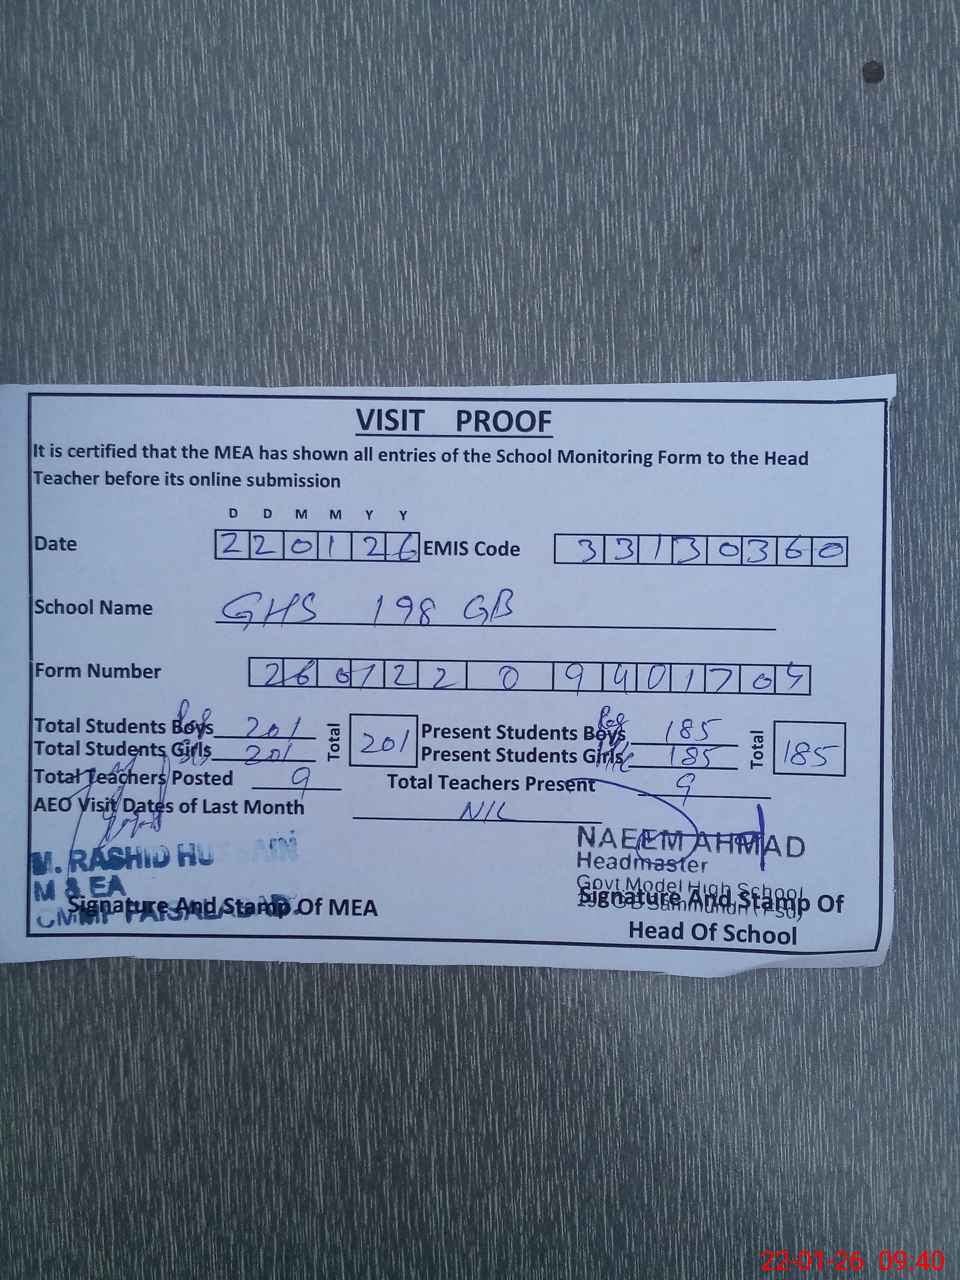 VISIT PROOF
It is certified that the MEA has shown all entries of the School Monitoring Form to the Head
Teacher before its online submission
D D M M Y Y
Date 2 2 0 1 2 6 EMIS Code 3 3 1 3 0 3 6 0
School Name GHS 198 GB
Form Number 2 6 0 1 2 2 0 9 4 0 1 7 0
Total Students Boys 201 Total 201 Present Students Boys 185 Total 185
Total Students Girls 201 Present Students Girls 185
Total Teachers Posted 9 Total Teachers Present 9
AEO Visit Dates of Last Month NIL
M. RASHID HUSSAIN
M & EA
CMMF FAISALABAD.
Signature And Stamp Of MEA
NAEEM AHMAD
Headmaster
Govt Model High School
Signature And Stamp Of
Head Of School
22-01-26 09:40